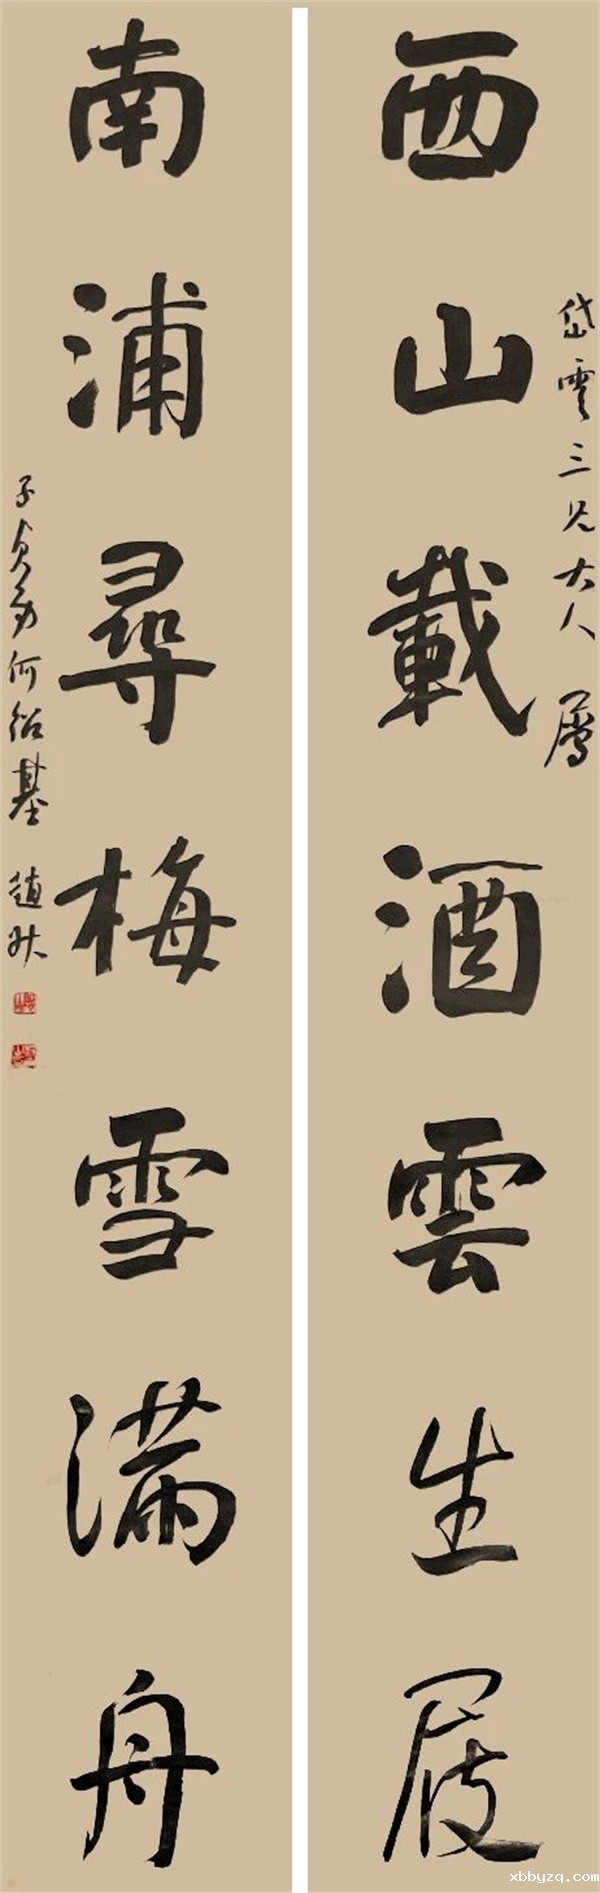 西山載酒雲生屐
岱雲三兄大人 屬
南浦尋梅雪滿舟
子貞弟何紹基 趙
xbbyzq.com